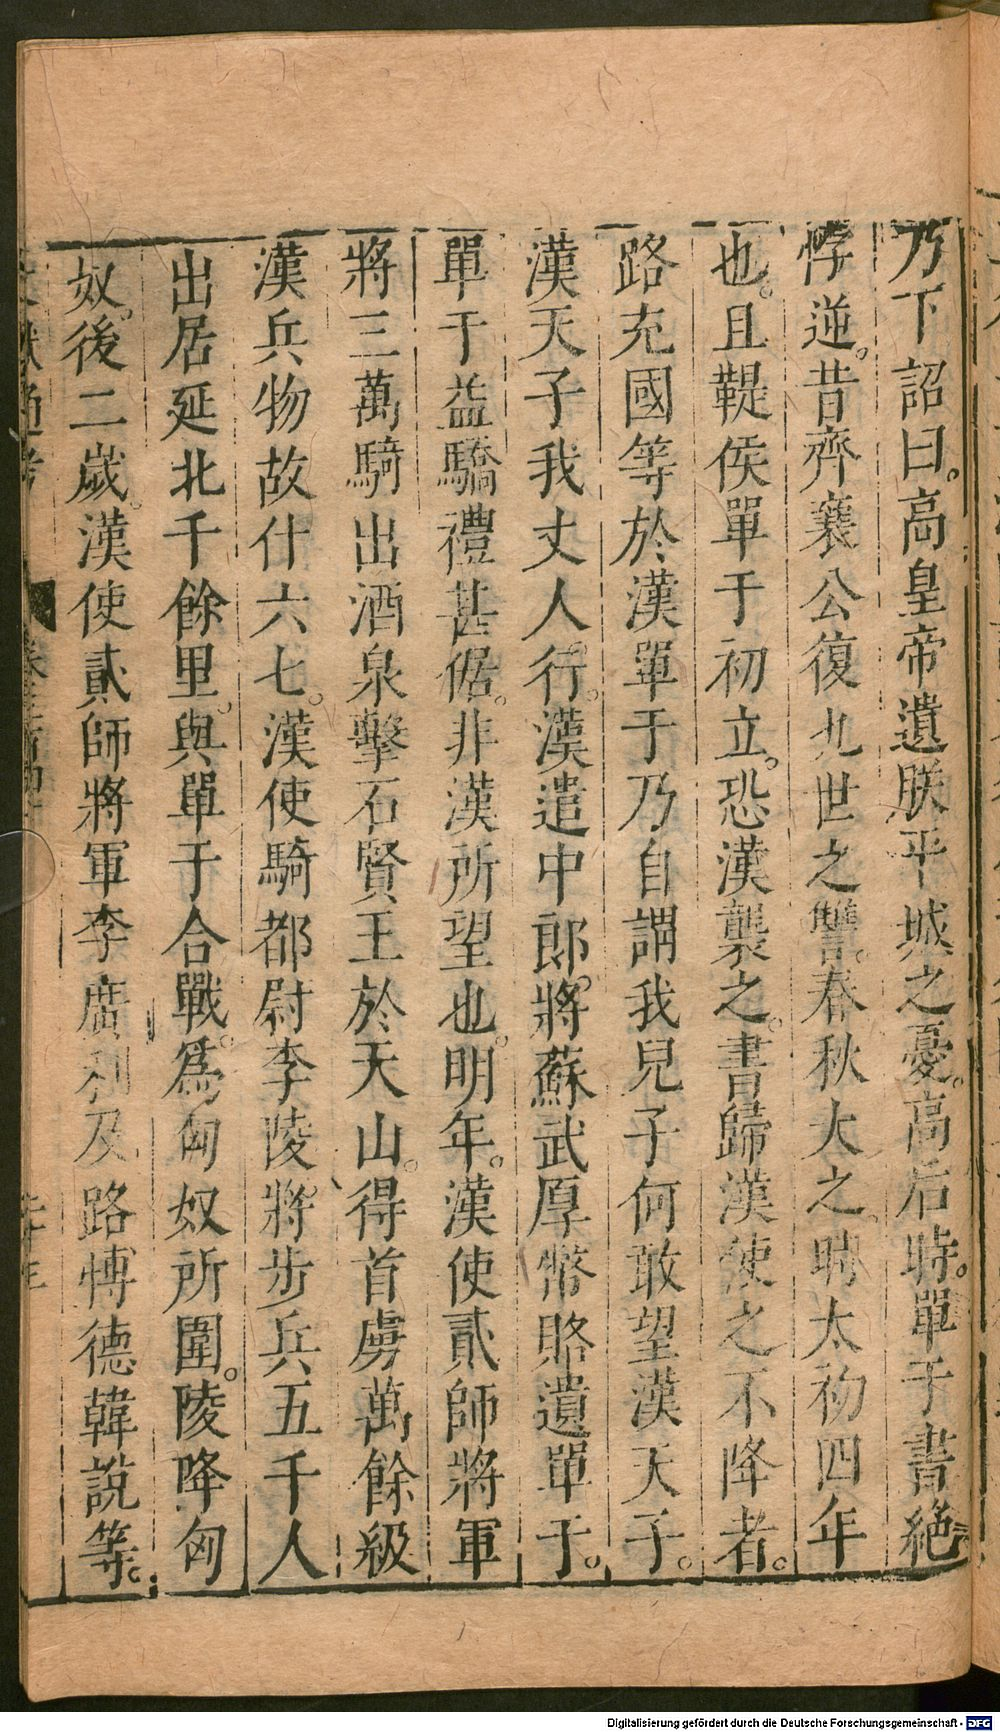 乃下詔曰。高皇帝遺朕平城之憂。高后時。單于書絶
悖逆。昔齊襄公復九世之讐。春秋大之。時太初四年
也。且鞮侯單于初立。恐漢襲之。書歸漢使之不降者。
路充國等於漢單于乃自謂我兒子何敢望漢天子。
漢天子我丈人行。漢遣中郎。將蘇武厚幣賂遺單于。
單于益驕禮甚倨。非漢所望也。明年。漢使貳師將軍
將三萬騎出酒泉擊右賢王於天山。得首虜萬餘級
漢兵物故什六七。漢使騎都尉李陵。將步兵五千人
出居延北千餘里。與單于合戰。爲匈奴所圍。陵降匈
奴。後二歲。漢使貳師將軍李廣利及路博德韓說等。
文獻通考
Digitalisierung gefördert durch die Deutsche Forschungsgemeinschaft - DFG